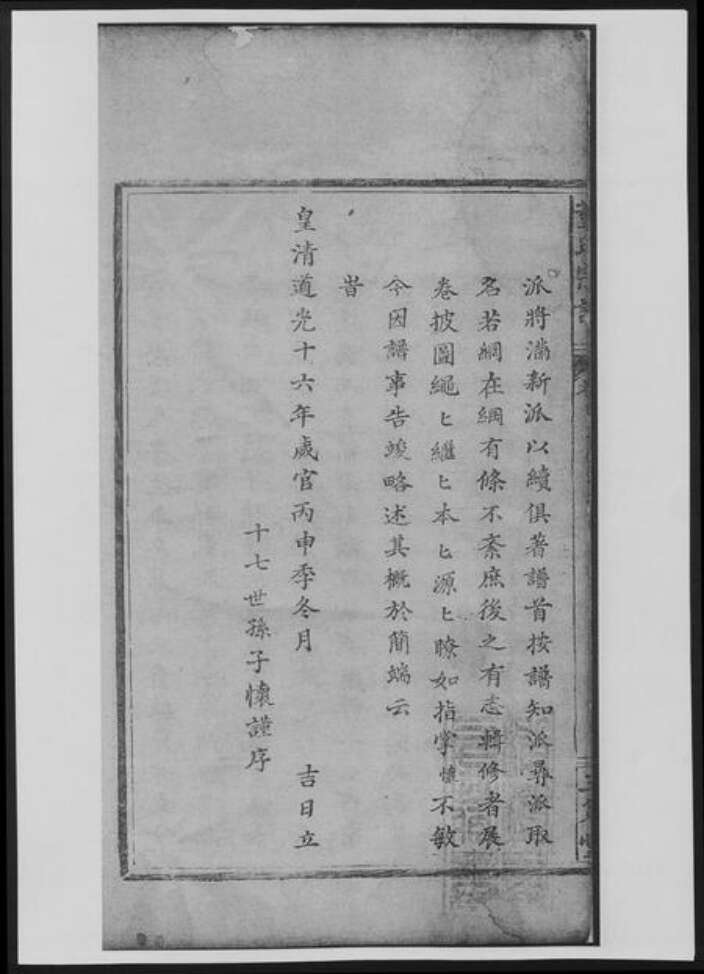 派將滿新派以續俱著譜首按譜知派尋派取
名若綱在綱有條不紊庶後之有志輯修者展
卷披圖繩ヒ繼ヒ本ヒ源ヒ瞭如指掌懷不敏
今因譜事告竣略述其概於簡端云
旹
皇清道光十六年歲官丙申季冬月 吉日立
十七世孫子懷謹序